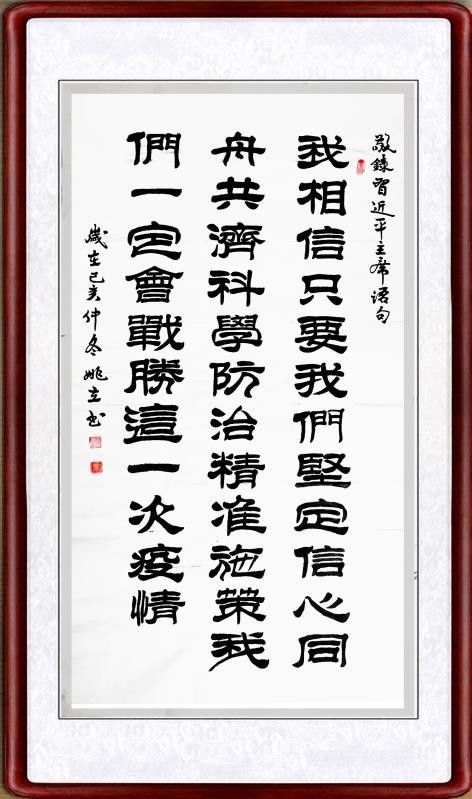 敬録習近平主席语句
我相信只要我們堅定信心同
舟共濟科學防治精准施策我
們一定會戰勝這一次疫情
歲在己亥仲冬姚立书